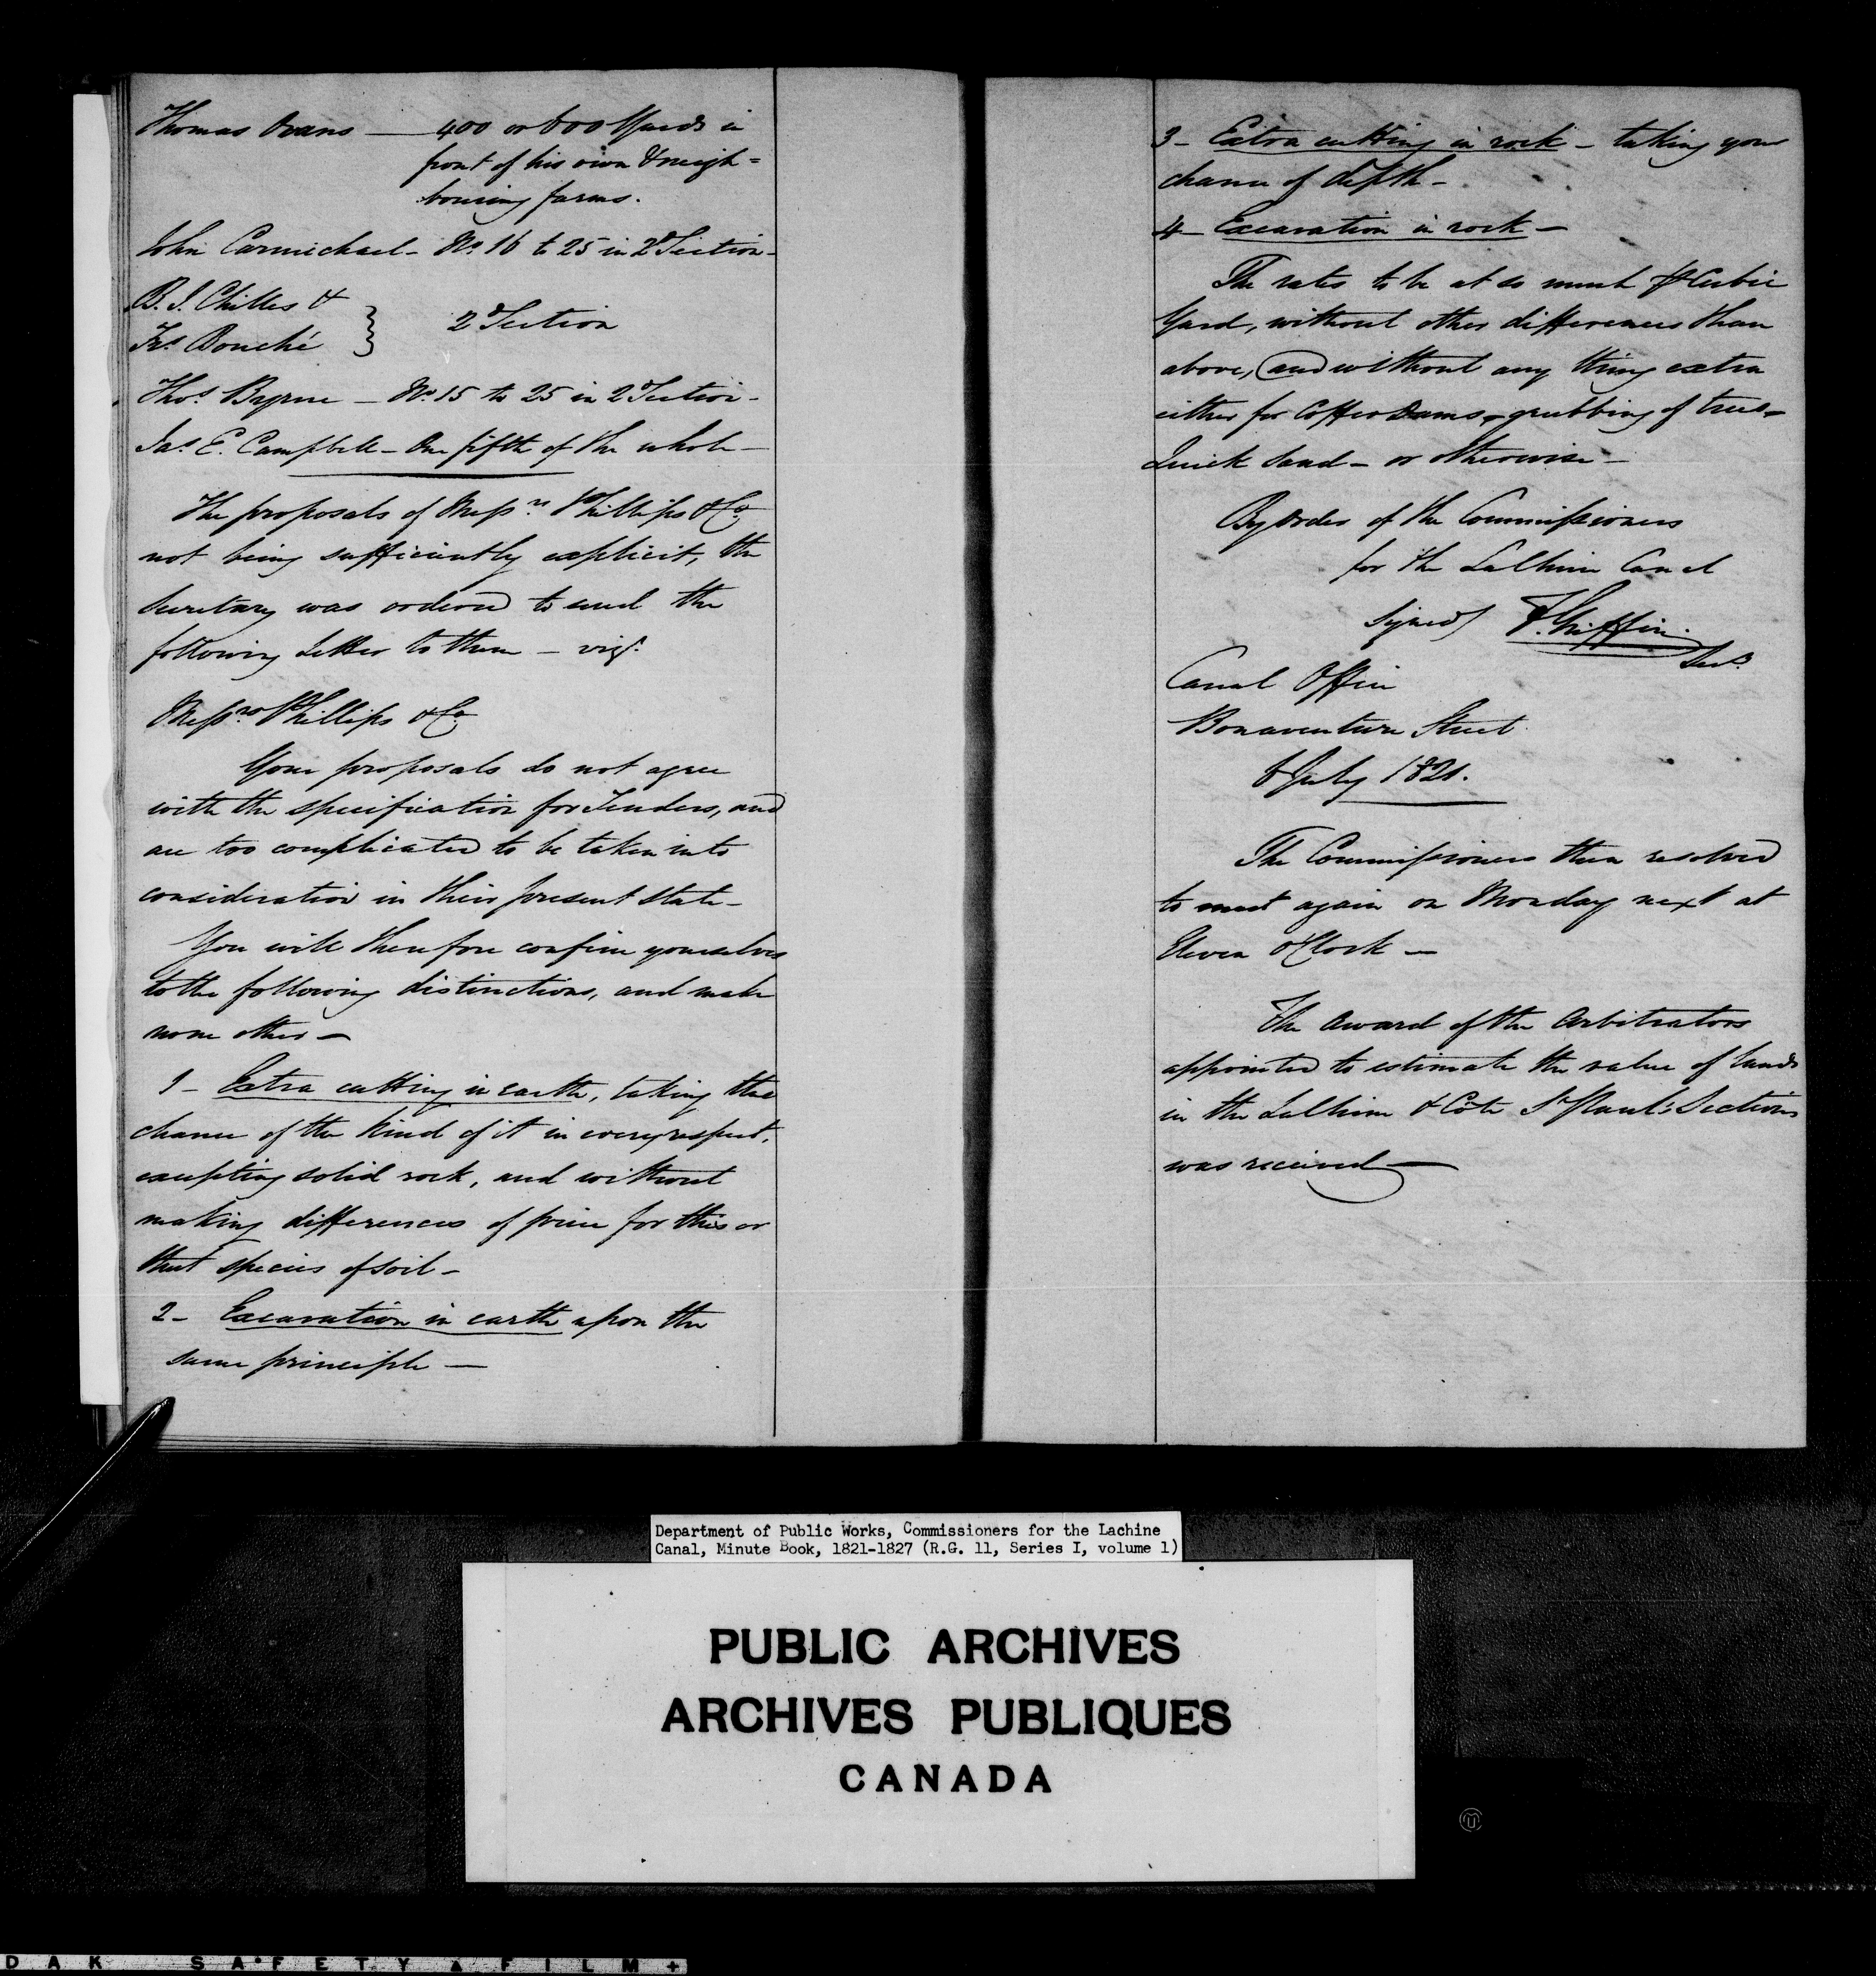 Thomas Evans — 400 or 600 Yards in
front of his own & neigh=
bouring farms.
John Carmichael - No. 16 to 25 in 2d Section -
B. J. Chilles &
Frs. Bouché } 2d Section
Thos. Byrne - No. 15 to 25 in 2d Section -
Jas. E. Campbell - One fifth of the whole -
The proposals of Messrs. Phillips & Co.
not being sufficiently explicit, the
Secretary was ordered to send the
following Letter to them - viz.
Messrs. Phillips & Co
Your proposals do not agree
with the specification for Tenders, and
are too complicated to be taken into
consideration in their present state -
You will therefore confine yourselves
to the following distinctions, and make
none other -
1 - Extra cutting in earth, taking the
chance of the kind of it in every respect,
excepting solid rock, and without
making differences of price for this or
that species of soil -
2 - Excavation in earth upon the
same principle —
3 - Extra cutting in rock - taking your
chance of depth -
4 - Excavation in rock -
The rates to be at so much P Cubic
Yard, without other differences than
above, and without any thing extra
either for Coffer Dams, grubbing of trees -
Quick Sand - or otherwise -
By order of the Commissioners
for the LaChine Canal
Signed) F. Griffin
Secy.
Canal Office
Bonaventure Street
6 July 1821.
The Commissioners then resolved
to meet again on Monday next at
Eleven O'Clock -
The Award of the Arbitrators
appointed to estimate the value of lands
in the LaChine & Côte St. Paul's Sections
was received —
Department of Public Works, Commissioners for the Lachine
Canal, Minute Book, 1821-1827 (R.G. 11, Series I, volume 1)
PUBLIC ARCHIVES
ARCHIVES PUBLIQUES
CANADA
DAK SAFETY FILM